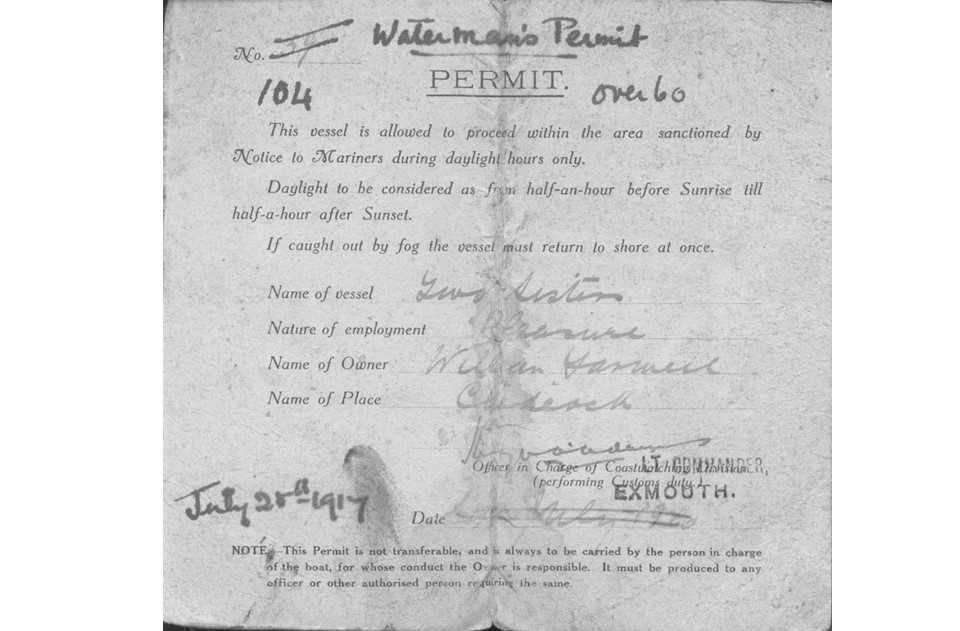 Waterman's Permit
No.
PERMIT.
104
over 60
This vessel is allowed to proceed within the area sanctioned by
Notice to Mariners during daylight hours only.
Daylight to be considered as from half-an-hour before Sunrise till
half-a-hour after Sunset.
If caught out by fog the vessel must return to shore at once.
Name of vessel Two Sisters
Nature of employment Pleasure
Name of Owner William
Name of Place Chideock
Officer in Charge of Coastwatching Division
LT. COMMANDER,
(performing Customs duty.)
EXMOUTH.
July 28th 1917
Date July
NOTE.—This Permit is not transferable, and is always to be carried by the person in charge
of the boat, for whose conduct the Owner is responsible. It must be produced to any
officer or other authorised person requiring the same.